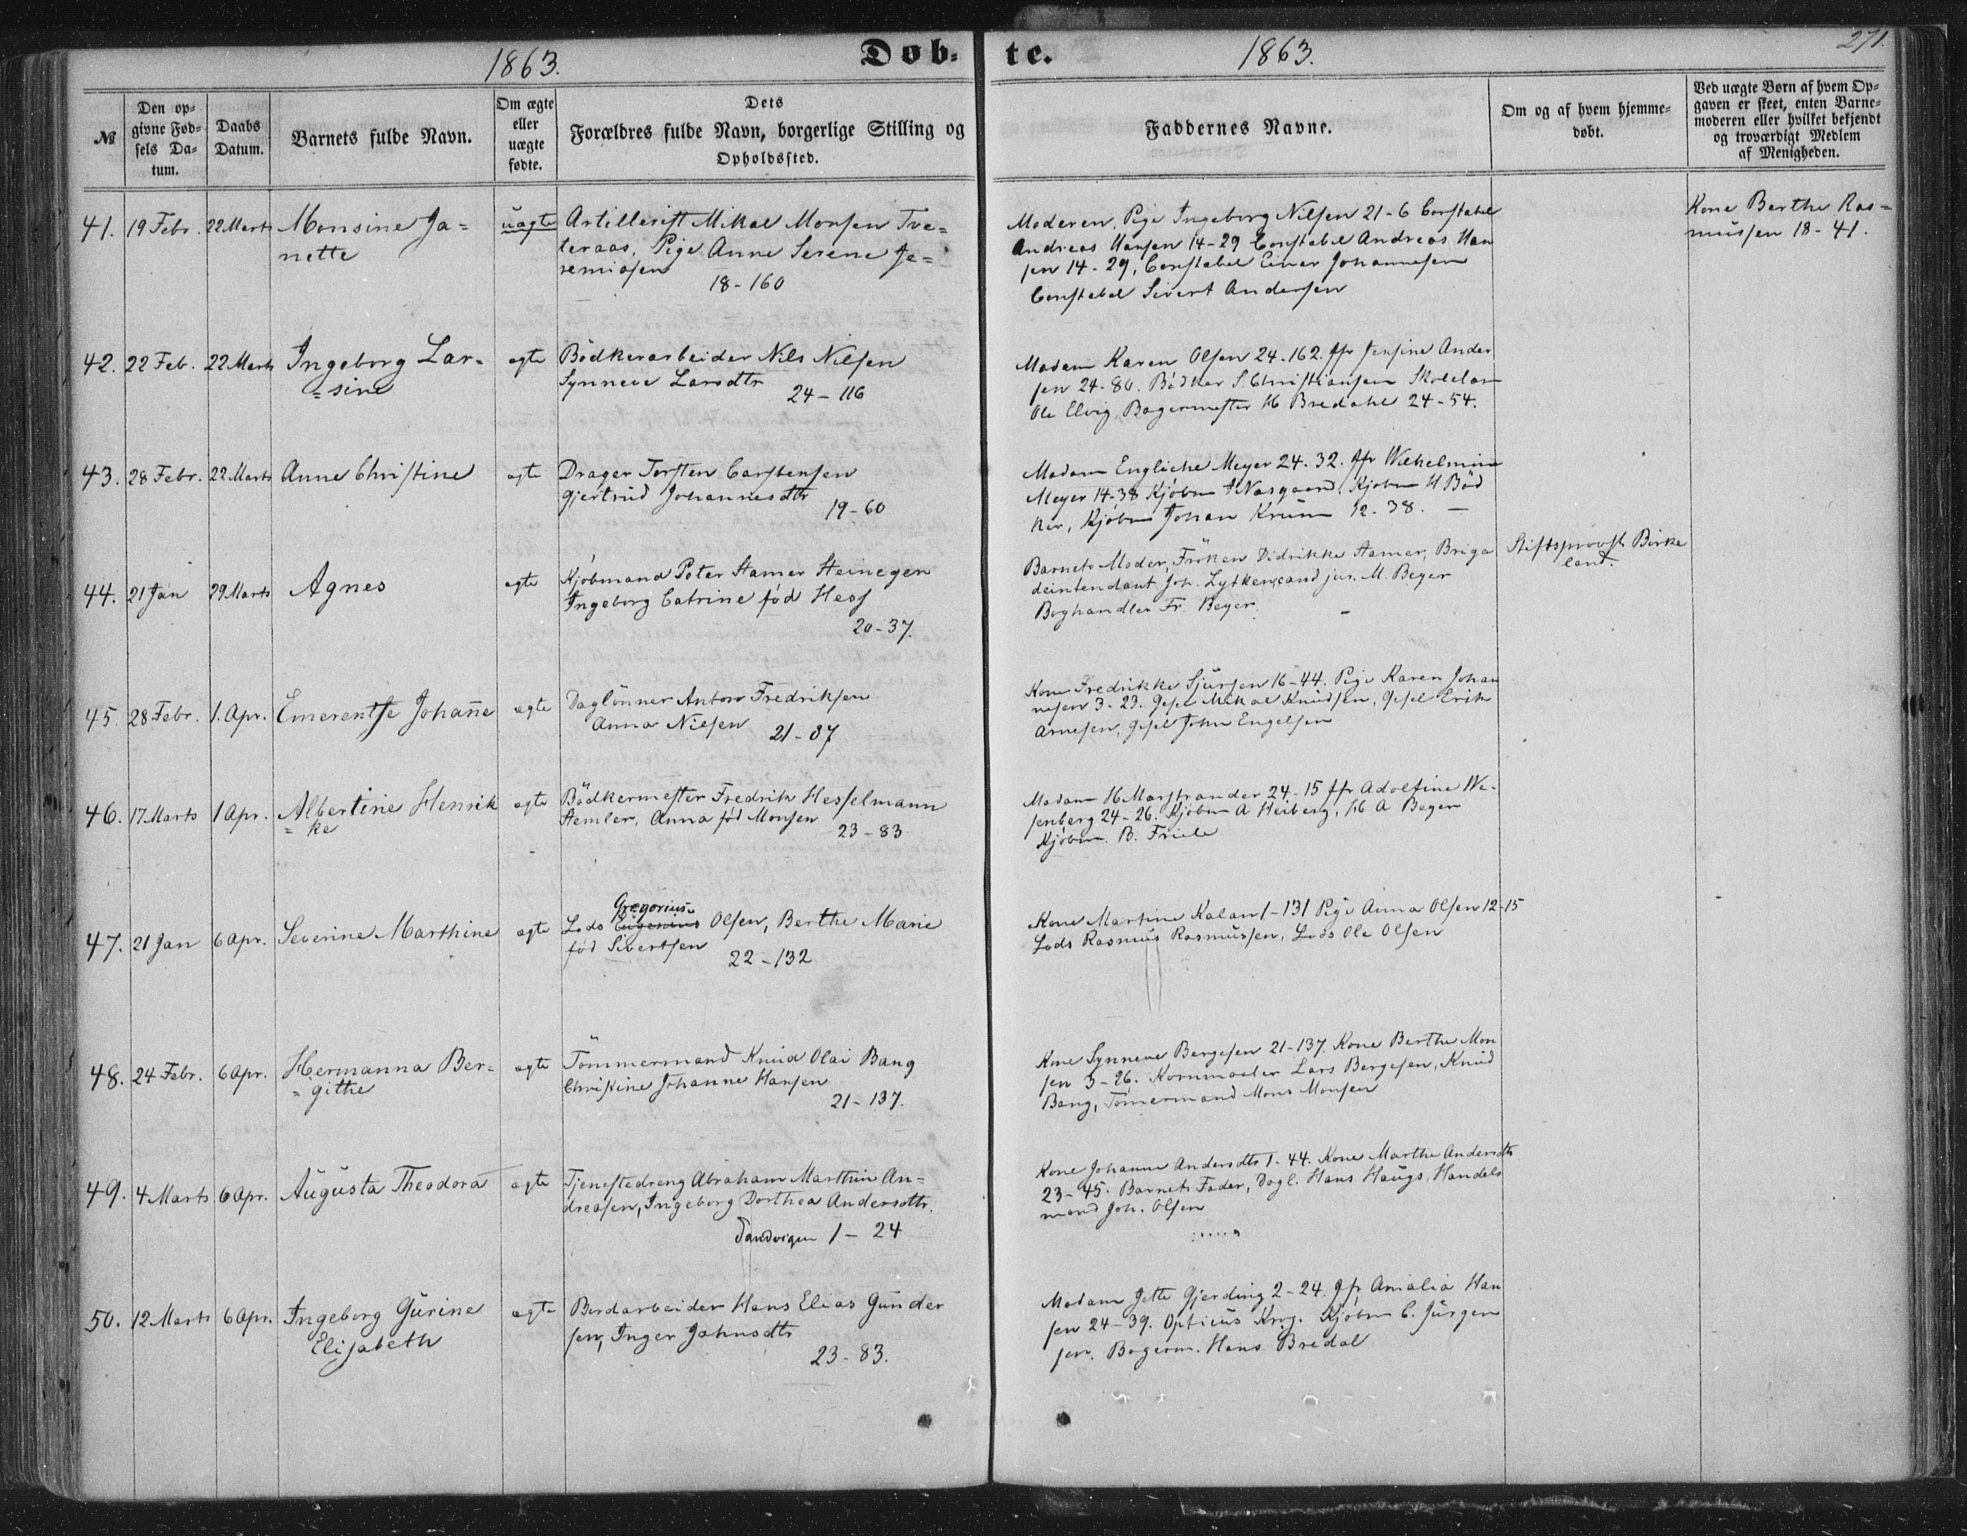 1863. Døb- te. 1863. 271.
№
Den op-
givne Fød-
sels Da-
tum.
Daabs
Datum.
Barnets fulde Navn.
Om ægte
eller
uægte
fødte.
Dets
Forældres fulde Navn, borgerlige Stilling og
Opholdssted.
Faddernes Navne.
Om og af hvem hjemme-
døbt.
Ved uægte Børn af hvem Op-
gaven er skeet, enten Barne-
moderen eller hvilket bekjendt
og troværdigt Medlem
af Menigheden.
41. 19 Febr. 22 Marts Monsine Ja-
nette
uægte
Artillerist Mikal Monsen Tve-
teraas, Pige Anne Serene Je-
remiasen
18-160
Moderen, Pige Ingeborg Nilsen 21-6 Constabel
Andreas Hansen 14-29 Constabel Andreas Han
sen 14-29, Constabel Einar Johannesen
Constabel Sivert Andersen
Kone Berthe Ras-
mussen 18-41.
42. 22 Feb. 22 Marts Ingeborg Lar-
-sine
ægte
Bödkerarbeider Nils Nilsen
Synneve Larsdtr
24-116
Madam Karen Olsen 24-162. Jfr Jensine Ander
sen 24-80. Bödker S. Christiansen
Ole Elvig, Bagermester H Bredahl 24-54.
43. 28 Febr. 22 Marts Anne Christine
ægte
Drager Torsten Carstensen
Gjertrud Johannesdtr
19-60
Madam Engliche Meyer 24.32. Jfr Wilhelmine
Meyer 14-38 Kjøbm Nasgaard, Kjøbm H Bød
ker, Kjøbm Johan Krum 12-38. —
44. 21 Jan 29 Marts Agnes
ægte
Kjöbmand Peter Hamer Heineger
Ingeborg Catrine fød Hess
20-37.
Barnets Moder, Fröken Didrikke Hamer, Briga
deintendant Joh. Lytken, cand jur. M. Beyer
Boghandler Fr. Beyer.
Stiftsprovst Birke
land.
45. 28 Febr. 1. Apr. Emerentse Johañe
ægte
Daglönner Anton Fredriksen
Anna Nilsen 21-87
Kone Fredrikke Sjursen 16-44. Pige Karen Johan
nesen 3-23. Gesel Mikal Knudsen, Gesel Erik
Arnesen, Gesel John Engelsen
46. 17 Marts 1 Apr. Albertine Henrik
-ke
ægte
Bödkermester Fredrik Hesselmann
Hemler, Anna fød Monsen
23-83
Madam H Marstrander 24-15 Jfr Adolfine We-
senberg 24-26. Kjøbm A Heiberg, A Beyer
Kjøbm. B. Friele
47. 21 Jan 6 Apr. Severine Marthine
ægte
Gregorius
Lods Eugenius Olsen, Berthe Marie
fød Sivertsen
22-132
Kone Martine Kalan 1-131 Pige Anna Olsen 12-15
Lods Rasmus Rasmussen, Lods Ole Olsen
48. 24 Febr. 6 Apr. Hermanna Ber-
-githe
ægte
Tömmermand Knud Olai Bang
Christine Johanne Hansen
21-137.
Kone Synneve Bergesen 21-137. Kone Berthe Mon
sen 3-26. Kornmaaler Lars Bergesen, Knud
Bang, Tömermand Mons Monsen
49. 4 Marts 6 Apr. Augusta Theodora
ægte
Tjenestedreng Abraham Marthin An-
dreasen, Ingeborg Dorthea Andersdtr.
Sandvigen 1-24
Kone Johanne Andersdtr 1-44. Kone Marthe Andersdtr
23-45. Barnets Fader, Dagl. Hans Haugs, Handels
mand Joh. Olsen
50. 12 Marts 6 Apr. Ingeborg Gurine
Elisabeth
ægte
Bordarbeider Hans Elias Gunder
sen, Inger Johnsdtr
23-83.
Madam Jette Gjerding 2-24. Jfr Amalia Han
sen 24-39. Opticus Krog. Kjøbm C. Jürgen
sen. Bagerm. Hans Bredal